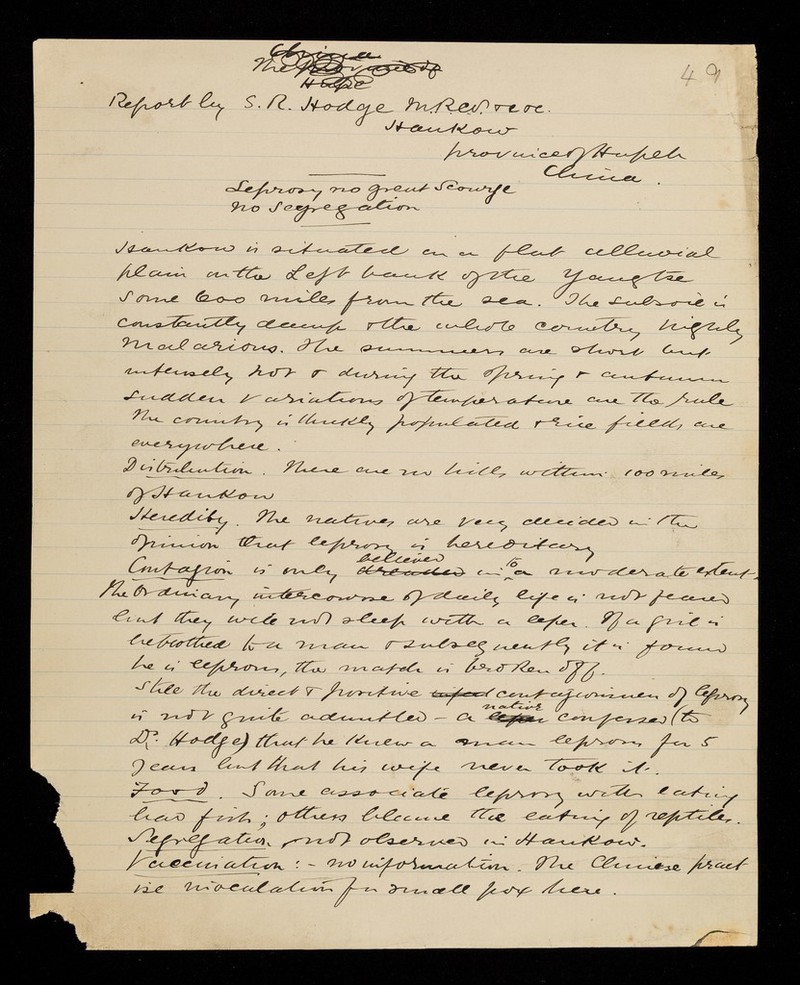 China
The Province of
Hupe
49
Report by S. R. Hodge M.R.C.S. &c &c.
Hankow
province of Hupeh
China.
Leprosy no great Scourge
no Segregation
Hankow is situated on a flat alluvial
plain on the Left bank of the Yangtse
some 600 miles from the sea. The subsoil is
constantly damp & the whole country highly
malarious. The summers are short but
intensely hot & during the spring & autumn
sudden variations of temperature are the rule
The country is thickly populated & rice fields are
everywhere.
Distribution. There are no hills within 100 miles
of Hankow
Heredity. The natives are very decided in the
opinion that leprosy is hereditary
believed to
Contagion is only dreaded in a moderate extent.
The ordinary intercourse of daily life is not feared
but they will not sleep with a leper. If a girl is
betrothed to a man & subsequently it is found
he is leprous, the match is broken off.
Still the direct & positive contagiousness of leprosy
native
is not quite admitted - a leper confessed (to
Dr. Hodge) that he knew a man leprous for 5
years but that his wife never took it.
Food. Some associate leprosy with eating
bad fish; others blame the eating of reptiles.
Segregation not observed in Hankow.
Vaccination :- no information. The Chinese pract
ise inoculation for small pox here.